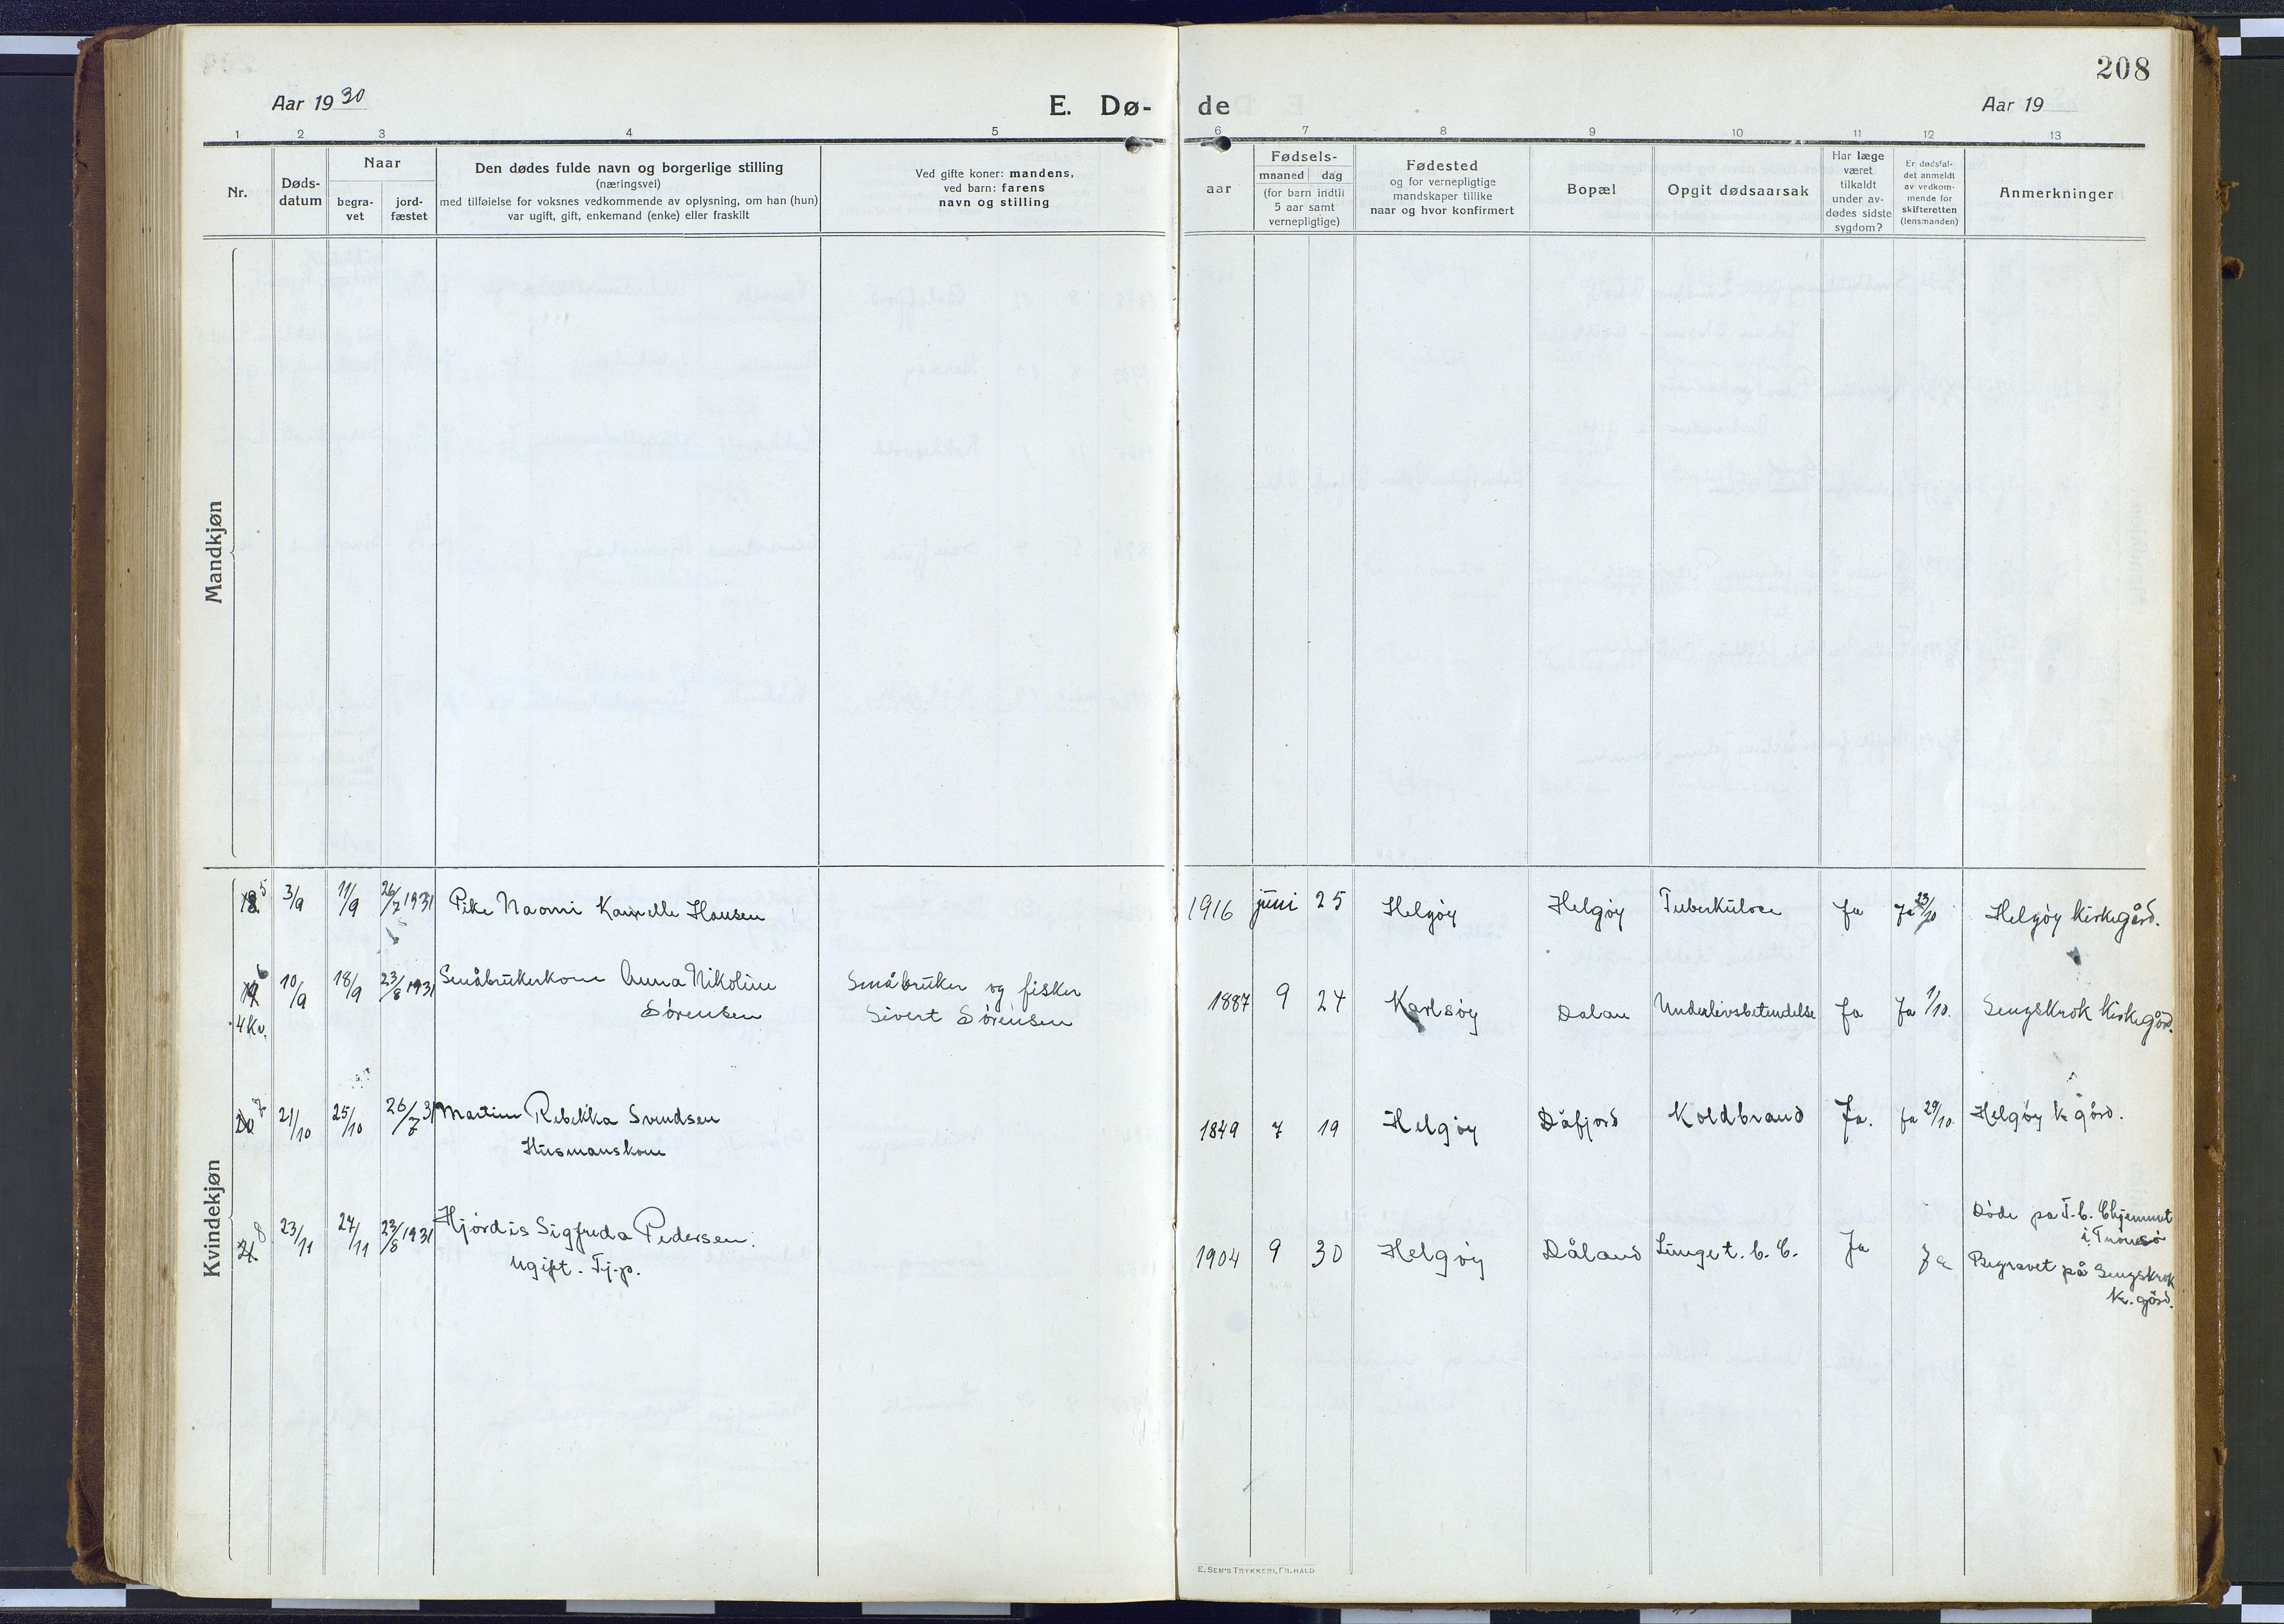 208
Aar 1930
E. Dø-
de
Aar 19
1 2 3 4 5 6 7 8 9 10 11 12 13
Nr.
Døds-
datum
Naar
begra-
vet
jord-
fæstet
Den dødes fulde navn og borgerlige stilling
(næringsvei)
med tilføielse for voksnes vedkommende av oplysning, om han (hun)
var ugift, gift, enkemand (enke) eller fraskilt
Ved gifte koner: mandens,
ved barn: farens
navn og stilling
aar
Fødsels-
maaned dag
(for barn indtil
5 aar samt
vernepligtige)
Fødested
og for vernepligtige
mandskaper tillike
naar og hvor konfirmert
Bopæl
Opgit dødsaarsak
Har læge
været
tilkaldt
under av-
dødes sidste
sygdom?
Er dødsfal-
det anmeldt
av vedkom-
mende for
skifteretten
(lensmanden)
Anmerkninger
Mandkjøn
Kvindekjøn
18 5 3/9 11/9 26/7 1931 Pike Naomi Kamelle Hansen 1916 juni 25 Helgøy Helgøy Tuberkulose Ja Ja 23/10 Helgøy kirkegård.
19 6 10/9 18/9 23/8 1931 Småbrukerkone Anna Nikoline Småbruker og fisker 1887 9 24 Karlsøy Dalan Underlivsbetendelse Ja Ja 1/10. Sengskrok kirkegård.
4 Kv. Sørensen Sivert Sørensen
20 7 21/10 25/10 26/7 31 Martine Rebekka Svendsen 1849 7 19 Helgøy Dåfjord Koldbrand Ja. Ja 29/10. Helgøy k. gård.
Husmanskone
21 8 23/11 27/11 23/8 1931 Hjørdis Sigfreda Pedersen. 1904 9 30 Helgøy Dåland Lunge t. b. C. Ja Ja Døde på T.b. Chjemmet
i Tromsø
ugift. Tj.p. Begravet på Sengskrok
k. gård.
E. SEM'S TRYKKERI, FR.HALD